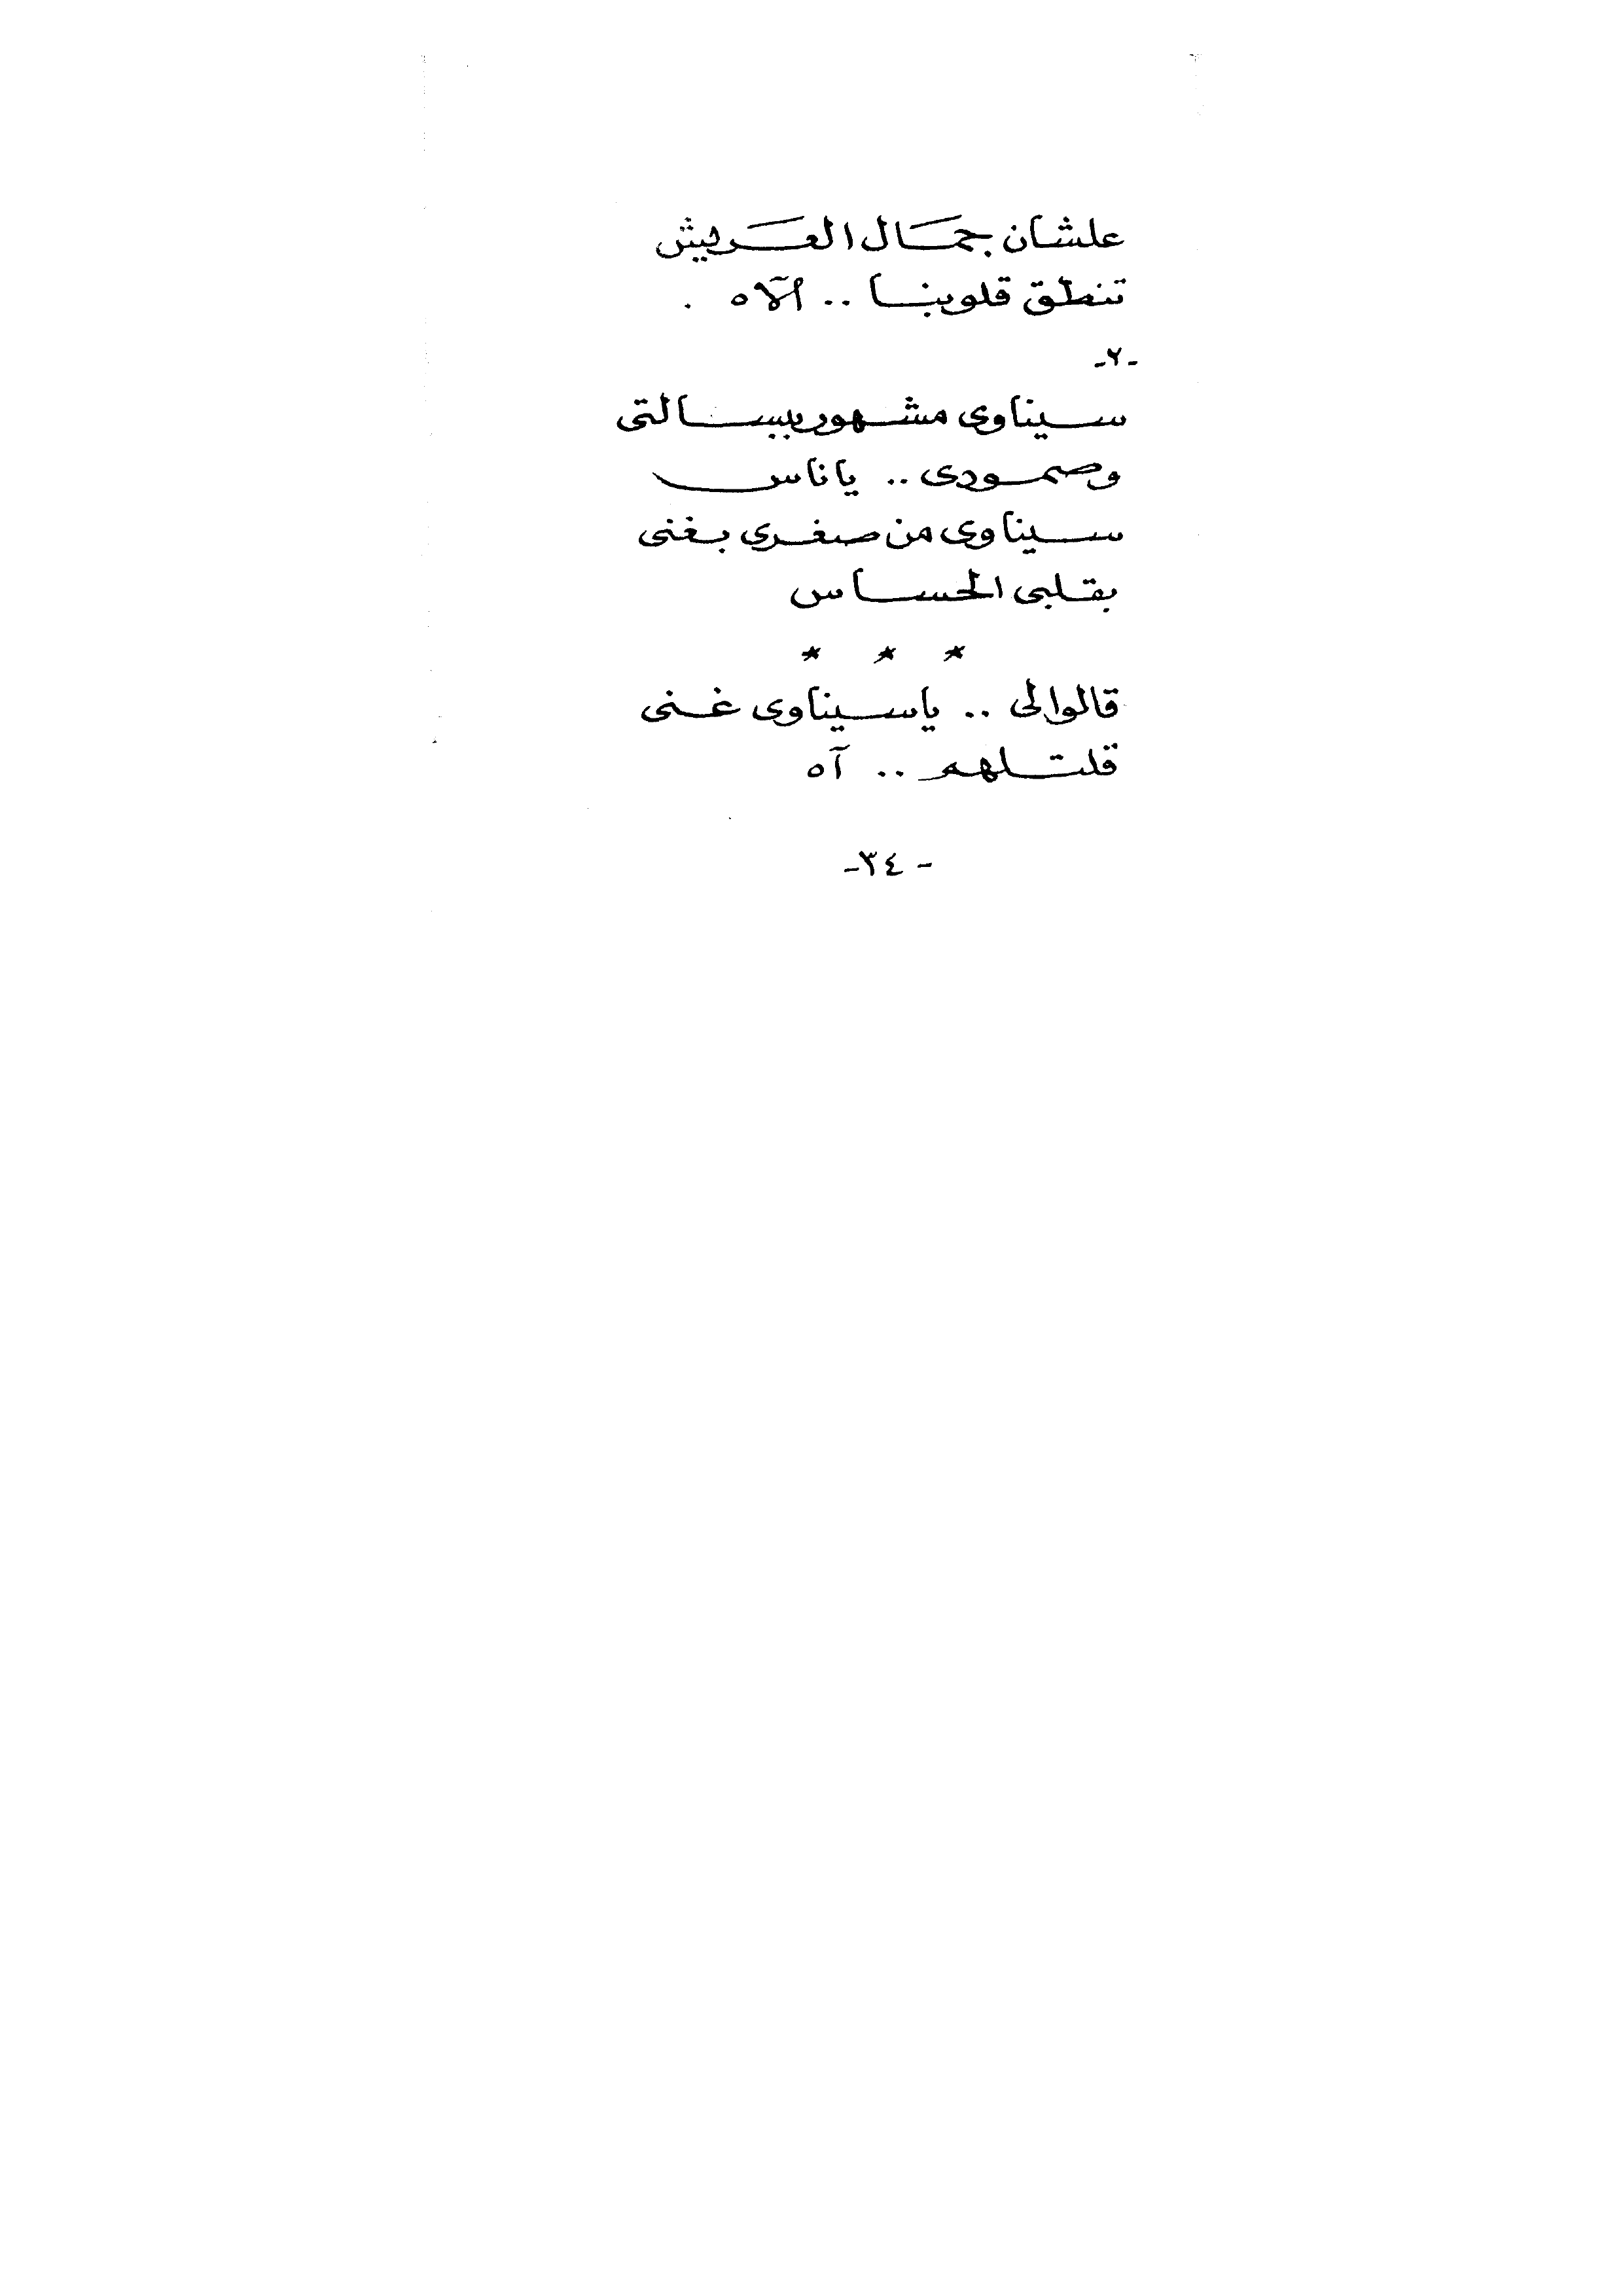 علشان جمال العريش
تنطق قلوبنا .. الآه .
-٢-
سيناوى مشهور ببسالتى
وصمودى .. ياناس
سيناوى من صغرى بغنى
بقلبى الحساس
* * *
قالوا لى .. ياسيناوى غنى
قلتلهم .. آه
-٣٤-